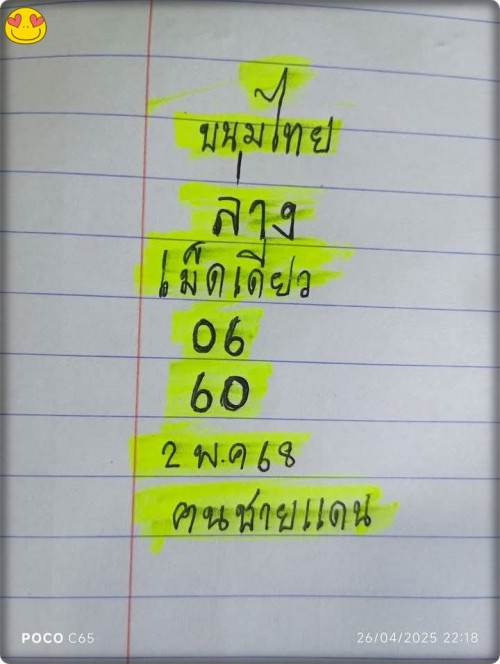 ขนุมไทย
ล่าง
เม็ดเดียว
06
60
2 พ.ค 68
ฅนชายแดน
POCO C65
26/04/2025 22:18